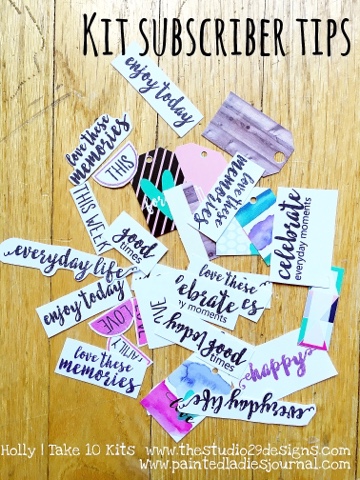 Kit subscriber tips
enjoy today
love these
memories
THIS
THIS WEEK
love these
memories
good
times
celebrate
everyday moments
everyday life
enjoy today
love these
LOVE
FAMILY
love these
memories
today
good
times
happy
everyday life
Holly | Take 10 Kits www.thestudio29designs.com
www.paintedladiesjournal.com